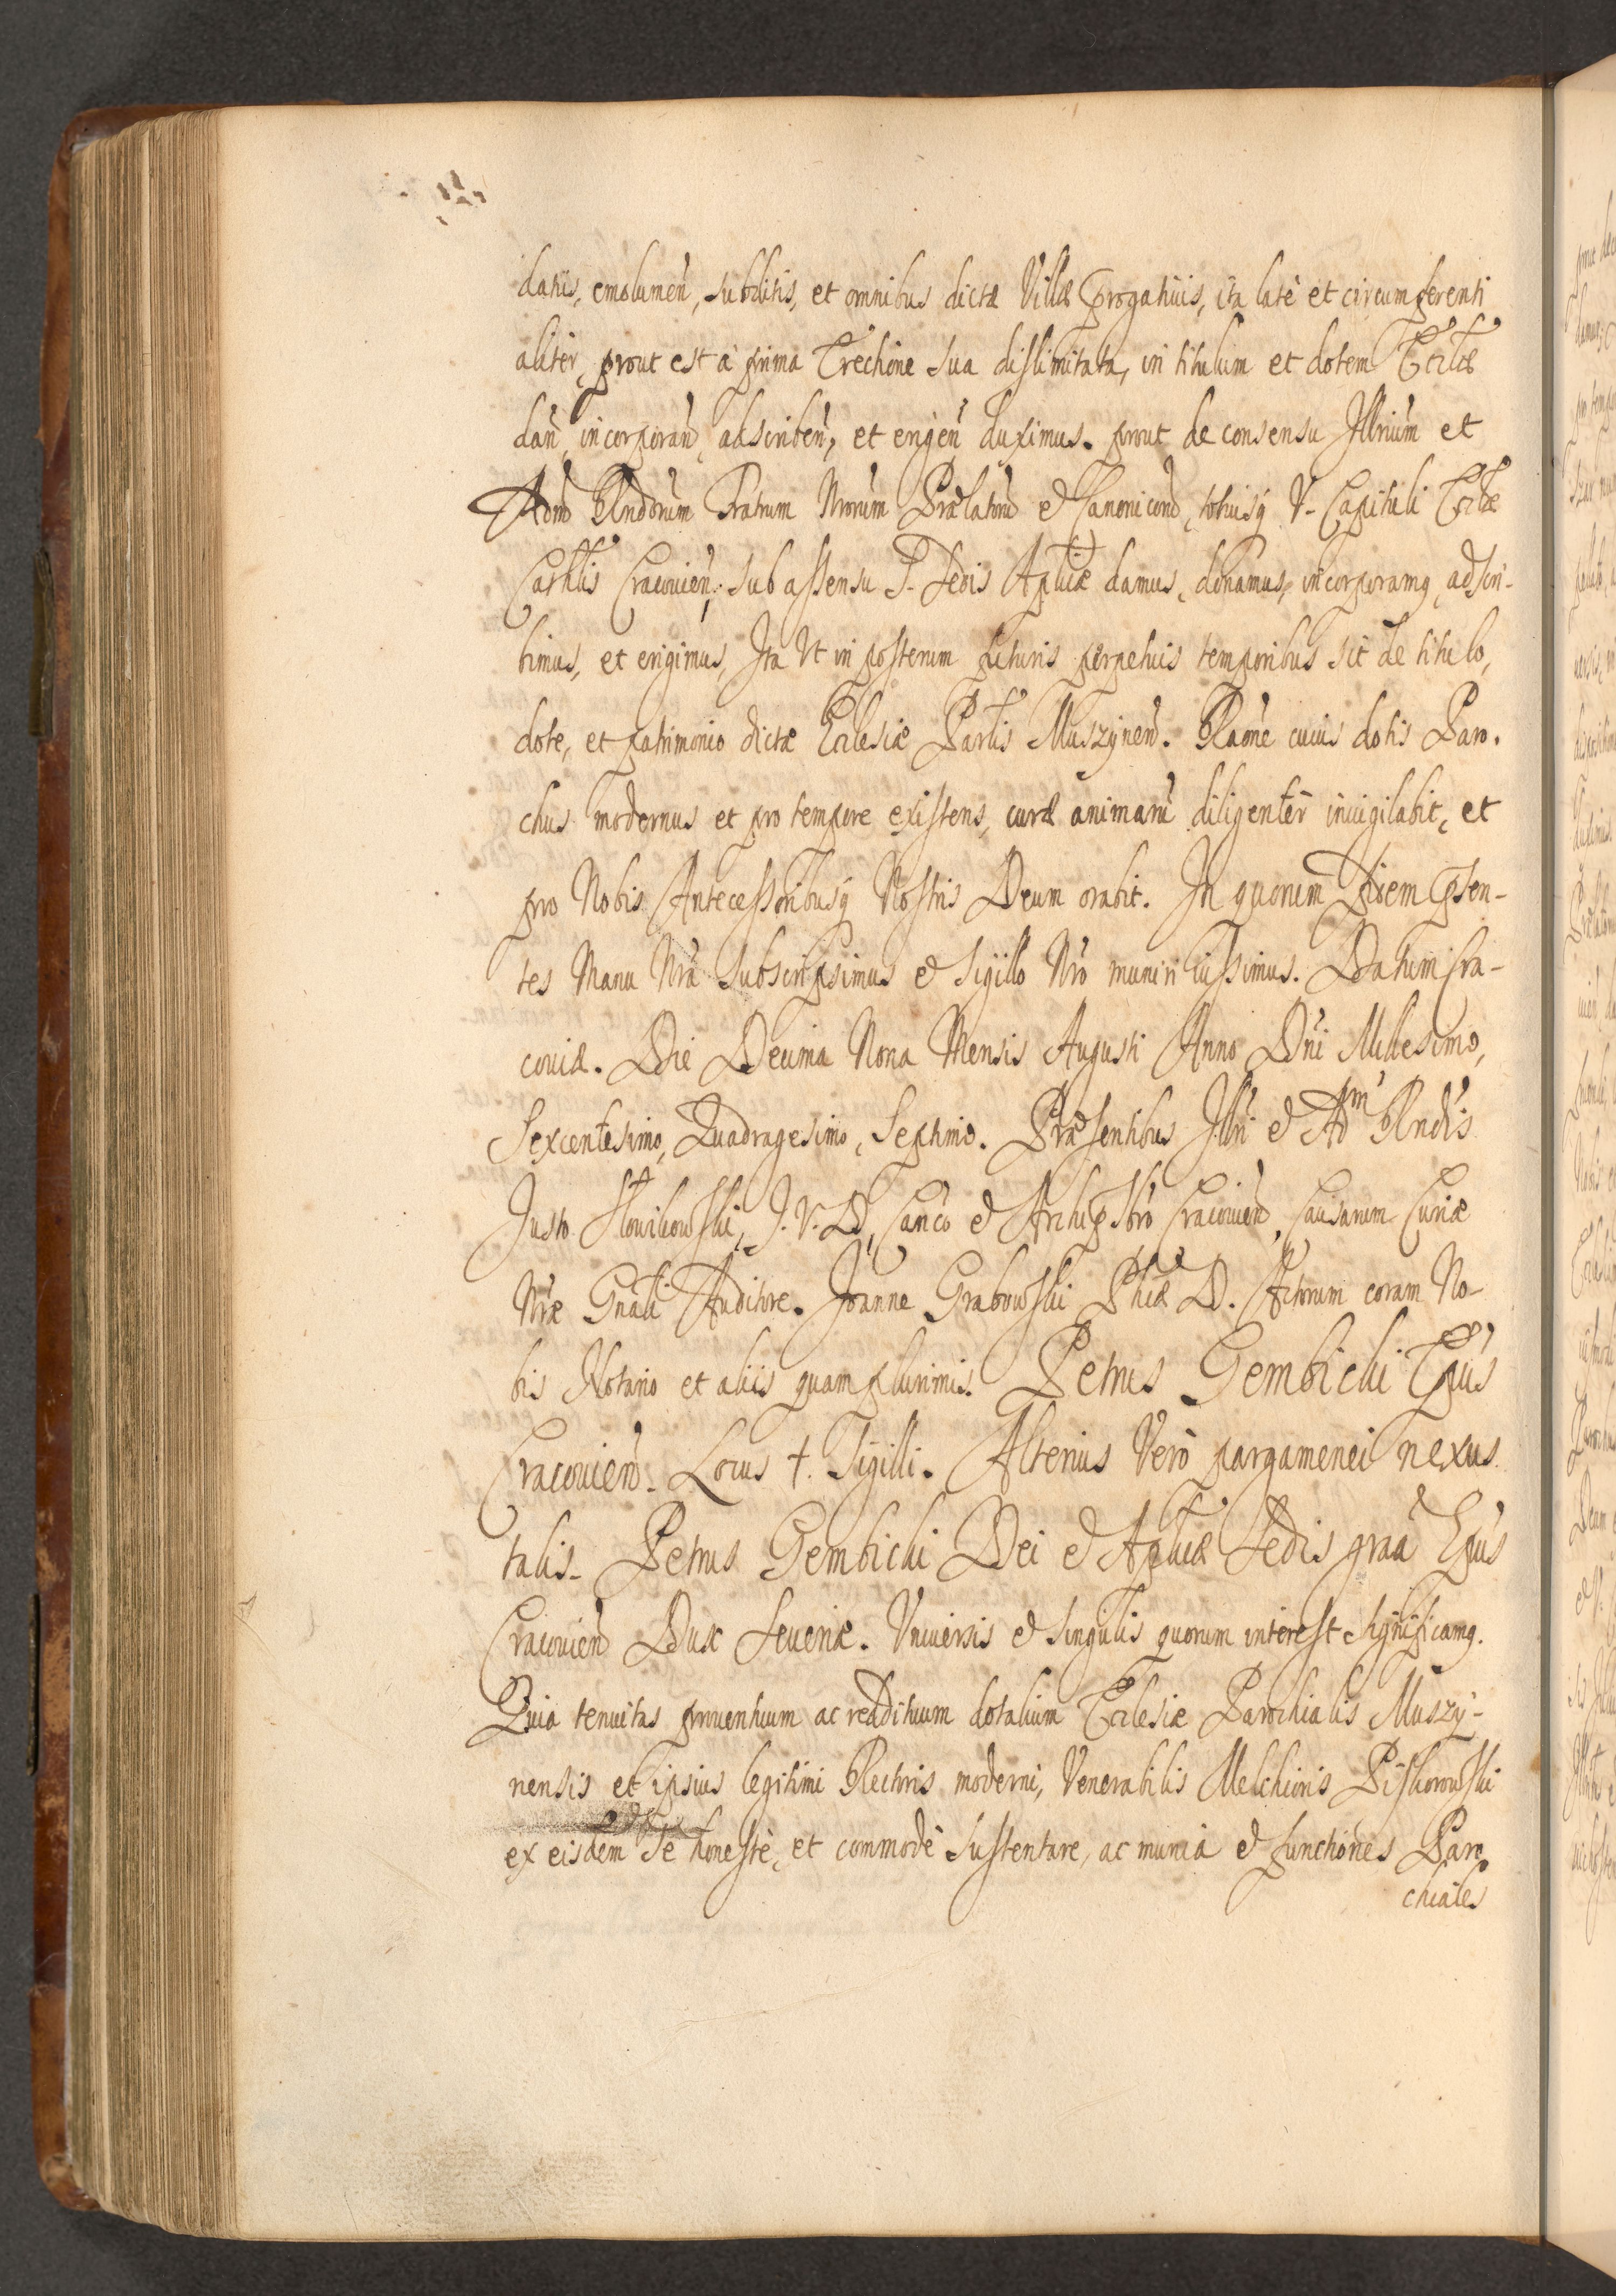 datis, emolumen, subditis, et omnibus dictæ Villæ prrogatiuis, ita latè et circumferenti
alitèr, prout est à prima Erectione sua dislimitata, in titulum et dotem Ecclæ
dan, incorporan, adscriben, et erigen duximus. prout de consensu Illrium et
Adm Rndorum Fratrum Nrorum Prælatorū et Canonicorū, totiusq V. Capituli Eclæ
Cathlis Cracouien, sub assensu S. Sedis Aplicæ damus, donamus, incorporamq, adscri-
bimus, et erigimus, Ita Vt in posterum futuris perpetuis temporibus sit de titulo,
dote, et patrimonio dictæ Ecclesiæ Parlis Muszynen. Raōne cuius dotis Paro-
chus modernus et pro tempore existens, curæ animarū diligentèr inuigilabit, et
pro Nobis Antecessoribusq Nostris Deum orabit. In quorum fidem psen-
tes Manu Nra subscripsimus et Sigillo Nro muniri iussimus. Datum Cra-
couiæ. Die Decima Nona Mensis Augusti Anno Dni Millesimo,
Sexcentesimo, Quadragesimo, Septimo. Præsentibus Illri et Adm Rndis
Justo Słowikowski, J. V. D, Canco et Archipbro Cracouien, Causarum Curiæ
Nræ Gnali Auditore. Joanne Grabowski Phiæ D. Actorum coram No-
bis Notario et aliis quamplurimis. Petrus Gembicki Epus
Cracouien. Locus †. Sigilli. Alterius Verò pargamenei nexus
talis. Petrus Gembicki Dei et Aplicæ Sedis graa Epus
Cracouien Dux Seueriæ. Vniuersis et singulis quorum interest significamq.
Quia tenuitas prouentuum ac reddituum dotalium Ecclesiæ Parochialis Muszy-
nensis et ipsius legitimi Rectoris moderni, Venerabilis Melchioris Piskorowski
ex eisdem se honestè, et commodè sustentare, ac munia et functiones Paro-
chiales